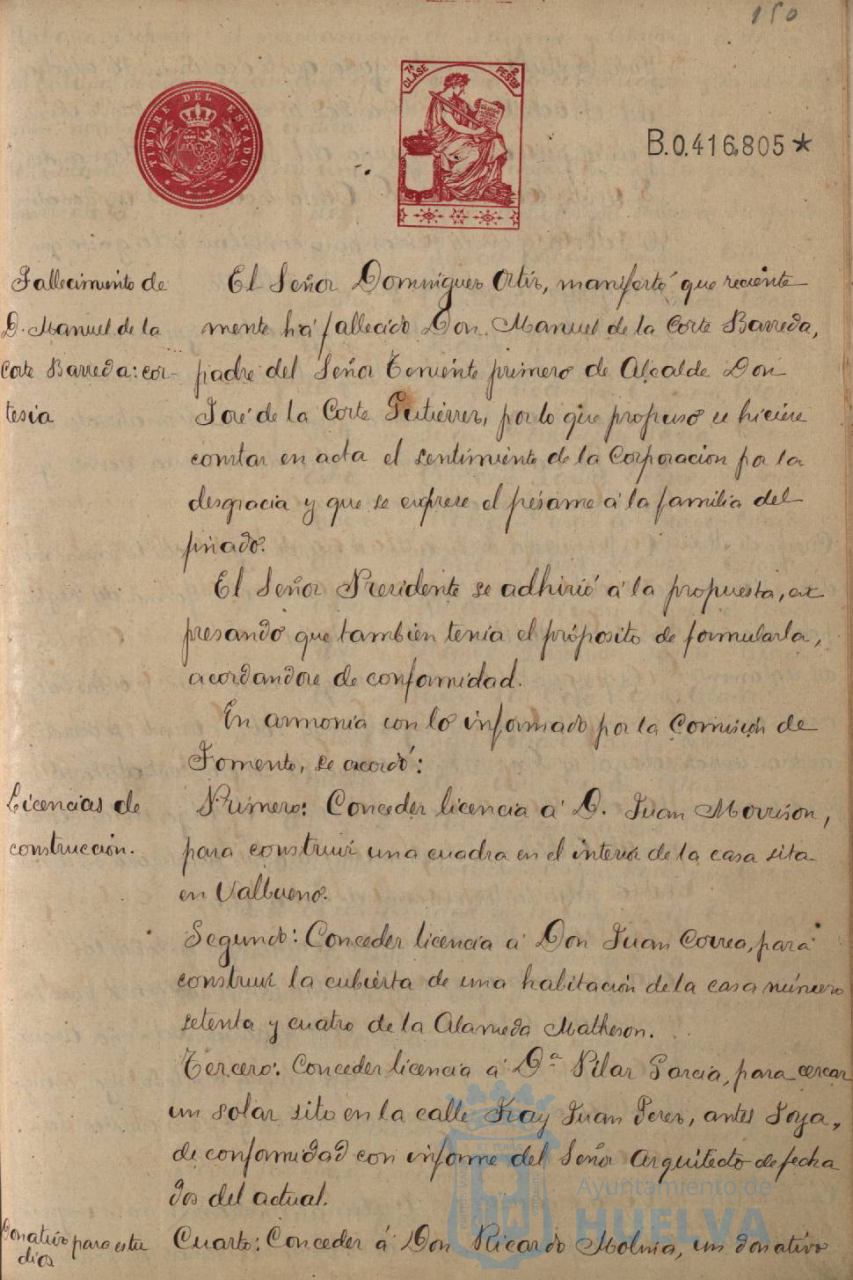 150
TIMBRE DEL ESTADO
7ª CLASE
2 PESETAS
B.0.416.805*
Fallecimiento de
D. Manuel de la
Corte Barreda: cor-
tesia
El Señor Dominguez Ortiz, manifestó que reciente
mente há fallecido Don Manuel de la Corte Barreda,
padre del Señor Teniente primero de Alcalde Don
José de la Corte Gutiérrez, por lo que propuso se hiciese
constar en acta el sentimiento de la Corporacion por la
desgracia y que se exprese el pésame á la familia del
finado.
El Señor Presidente se adhirió á la propuesta, ex
presando que tambien tenía el própósito de formularla,
acordandose de conformidad.
En armonía con lo informado por la Comisión de
Fomento, se acordó:
Licencias de
construcción.
Primero: Conceder licencia á D. Juan Morrison,
para construir una cuadra en el interior de la casa sita
en Valbueno.
Segundo: Conceder licencia á Don Juan Correa, para
construir la cubierta de una habitación de la casa número
setenta y cuatro de la Alameda Matheson.
Tercero: Conceder licencia á Dª Pilar García, para cercar
un solar sito en la calle Fray Juan Perez, antes Joya,
de conformidad con informe del Señor Arquitecto de fecha
dos del actual.
Donativo para estu
dios
Cuarto: Conceder á Don Ricardo Molina, un donativo
Ayuntamiento de
HUELVA